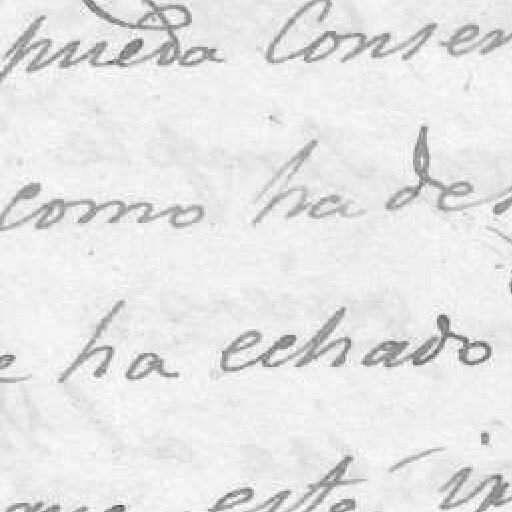 pueda Conser
como ha de
ha echado
que esté in